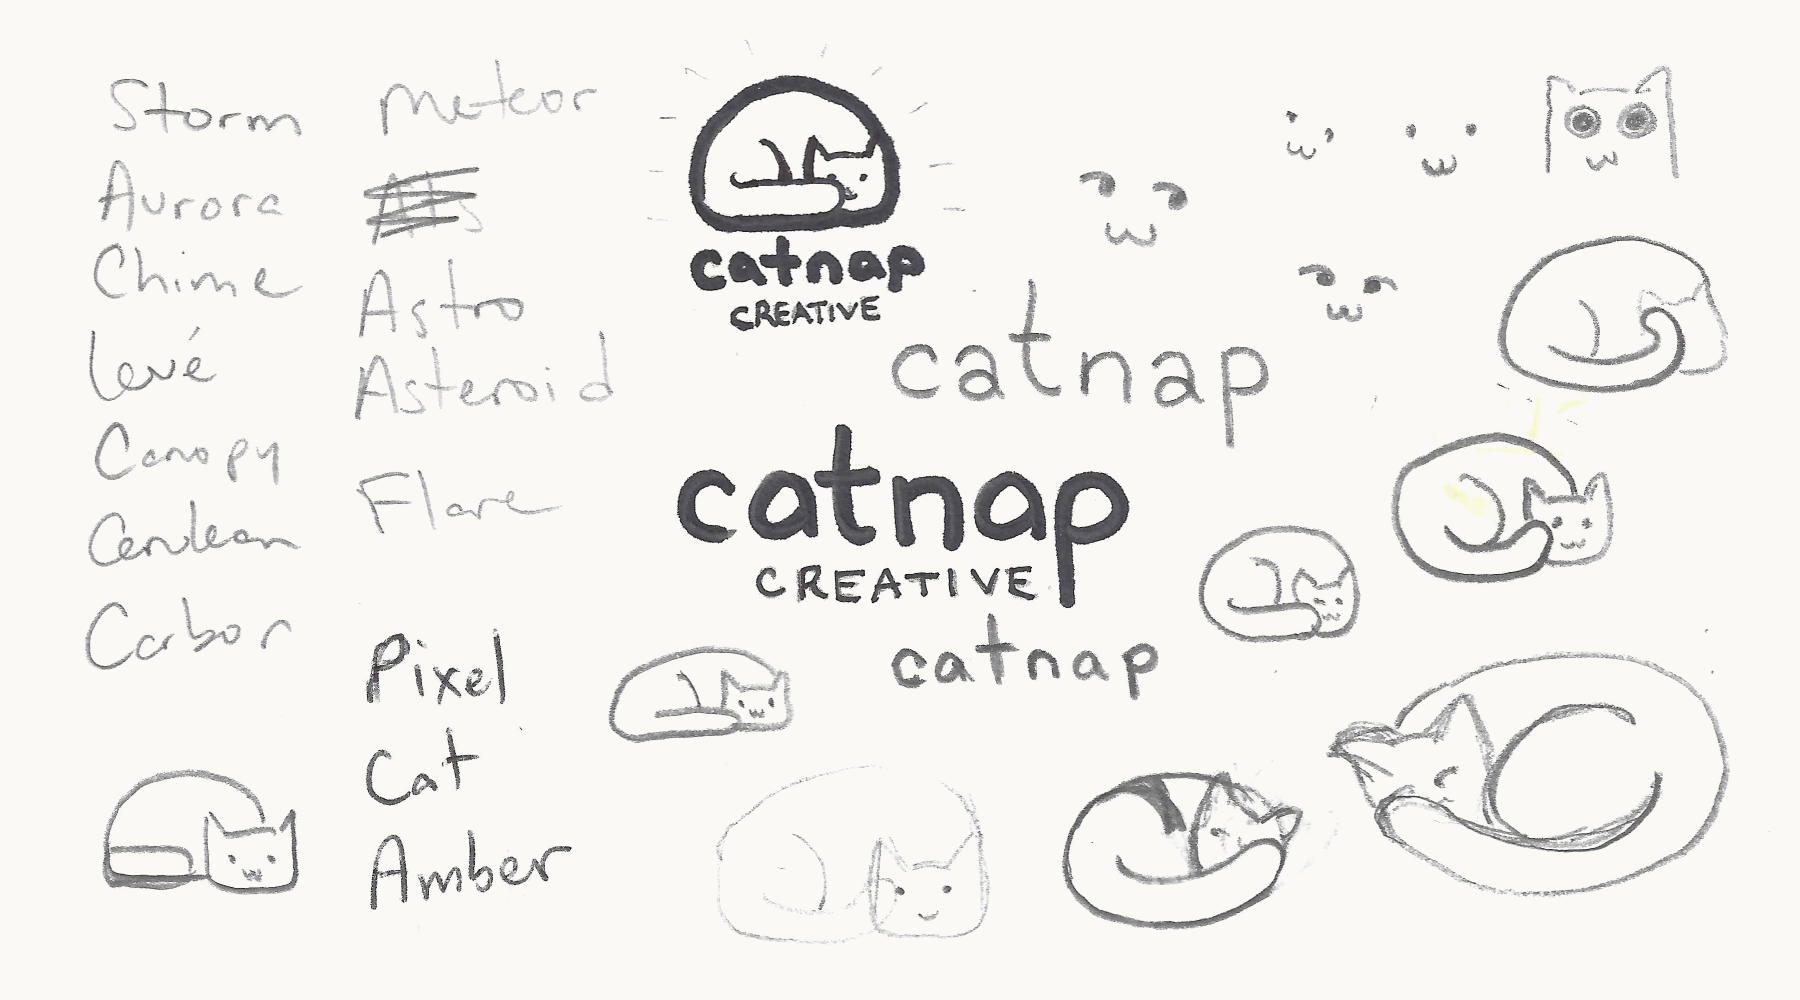 Storm
Aurora
Chime
Levé
Canopy
Cerulean
Carbon
Meteor
Astro
Asteroid
Flare
Pixel
Cat
Amber
catnap
CREATIVE
catnap
catnap
CREATIVE
catnap